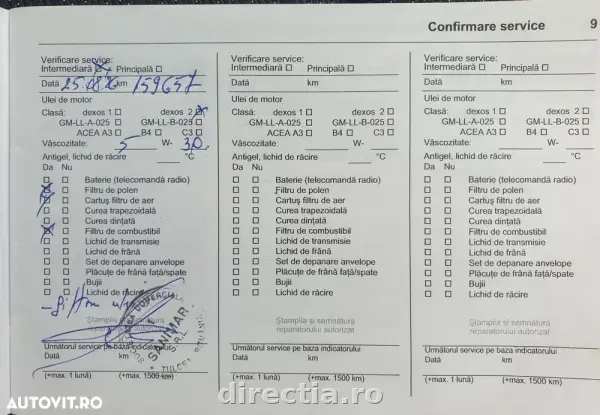 Confirmare service 9
Verificare service:
Intermediară ☒ Principală ☐
Dată 25.08.26 km 159657
Ulei de motor
Clasă: dexos 1 ☐ dexos 2 ☒
GM-LL-A-025 ☐ GM-LL-B-025 ☐
ACEA A3 ☐ B4 ☐ C3 ☐
Vâscozitate: 5 W- 30
Antigel, lichid de răcire ____ °C
Da Nu
☐ ☐ Baterie (telecomandă radio)
☒ ☐ Filtru de polen
☒ ☐ Cartuş filtru de aer
☐ ☐ Curea trapezoidală
☐ ☐ Curea dinţată
☒ ☐ Filtru de combustibil
☐ ☐ Lichid de transmisie
☐ ☐ Lichid de frână
☐ ☐ Set de depanare anvelope
☐ ☐ Plăcuţe de frână faţă/spate
☐ ☐ Bujii
☐ ☐ Lichid de răcire
Ştampila şi semnătura
reparatorului autorizat
COMERCIAL
SANMAR
S.R.L.
Următorul service pe baza indicatorului
Dată km
(+max. 1 lună) (+max. 1500 km)
Verificare service:
Intermediară ☐ Principală ☐
Dată km
Ulei de motor
Clasă: dexos 1 ☐ dexos 2 ☐
GM-LL-A-025 ☐ GM-LL-B-025 ☐
ACEA A3 ☐ B4 ☐ C3 ☐
Vâscozitate: ____ W- ____
Antigel, lichid de răcire ____ °C
Da Nu
☐ ☐ Baterie (telecomandă radio)
☐ ☐ Filtru de polen
☐ ☐ Cartuş filtru de aer
☐ ☐ Curea trapezoidală
☐ ☐ Curea dinţată
☐ ☐ Filtru de combustibil
☐ ☐ Lichid de transmisie
☐ ☐ Lichid de frână
☐ ☐ Set de depanare anvelope
☐ ☐ Plăcuţe de frână faţă/spate
☐ ☐ Bujii
☐ ☐ Lichid de răcire
Ştampila şi semnătura
reparatorului autorizat
Următorul service pe baza indicatorului
Dată km
(+max. 1 lună) (+max. 1500 km)
Verificare service:
Intermediară ☐ Principală ☐
Dată km
Ulei de motor
Clasă: dexos 1 ☐ dexos 2 ☐
GM-LL-A-025 ☐ GM-LL-B-025 ☐
ACEA A3 ☐ B4 ☐ C3 ☐
Vâscozitate: ____ W- ____
Antigel, lichid de răcire ____ °C
Da Nu
☐ ☐ Baterie (telecomandă radio)
☐ ☐ Filtru de polen
☐ ☐ Cartuş filtru de aer
☐ ☐ Curea trapezoidală
☐ ☐ Curea dinţată
☐ ☐ Filtru de combustibil
☐ ☐ Lichid de transmisie
☐ ☐ Lichid de frână
☐ ☐ Set de depanare anvelope
☐ ☐ Plăcuţe de frână faţă/spate
☐ ☐ Bujii
☐ ☐ Lichid de răcire
Ştampila şi semnătura
reparatorului autorizat
Următorul service pe baza indicatorului
Dată km
(+max. 1 lună) (+max. 1500 km)
AUTOVIT.RO
directia.ro